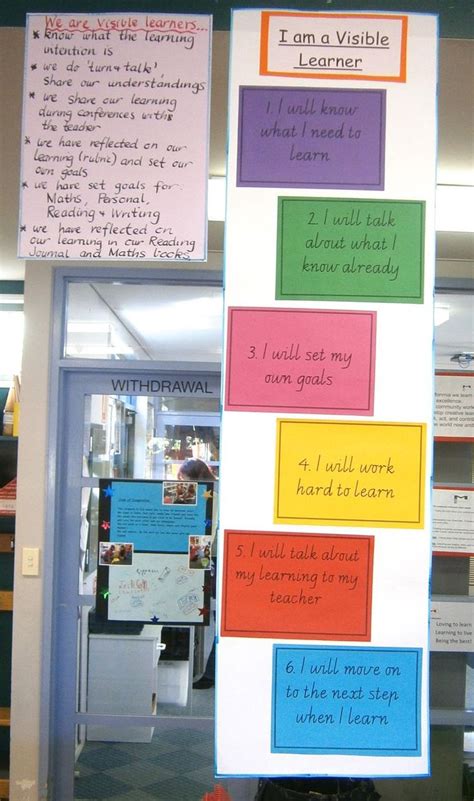 We are Visible learners...
* know what the learning
intention is
* we do 'turn & talk'
share our understandings
* we share our learning
during conferences with
the teacher
* we have reflected on our
learning (rubric) and set our
own goals
* we have set goals for:
Maths, Personal,
Reading & Writing
* we have reflected on
our learning in our Reading
Journal and Maths books
I am a Visible
Learner
1. I will know
what I need to
learn
2. I will talk
about what I
know already
3. I will set my
own goals
4. I will work
hard to learn
5. I will talk about
my learning to my
teacher
6. I will move on
to the next step
when I learn
WITHDRAWAL
we learn
excellence
community
Loving to learn
Learning to live
Being the best!